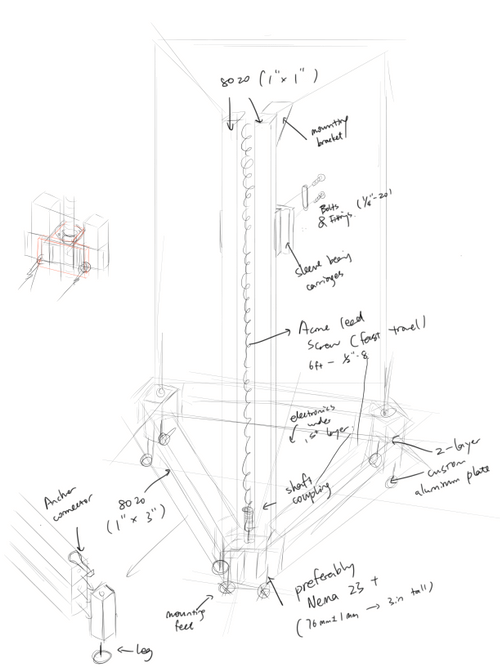 8020 (1"x 1")
mounting
bracket
Bolts
& Fittings (
sleeve bearing
carriages
Acme lead
screw (fast travel)
6ft - ½"-8
electronics
under
1st layer
2-layer
custom
aluminum plate
shaft
coupling
Anchor
connector
8020
(1" x 3")
preferably
Nema 23 +
(76mm±1mm → 3in tall)
mounting
feet
← leg